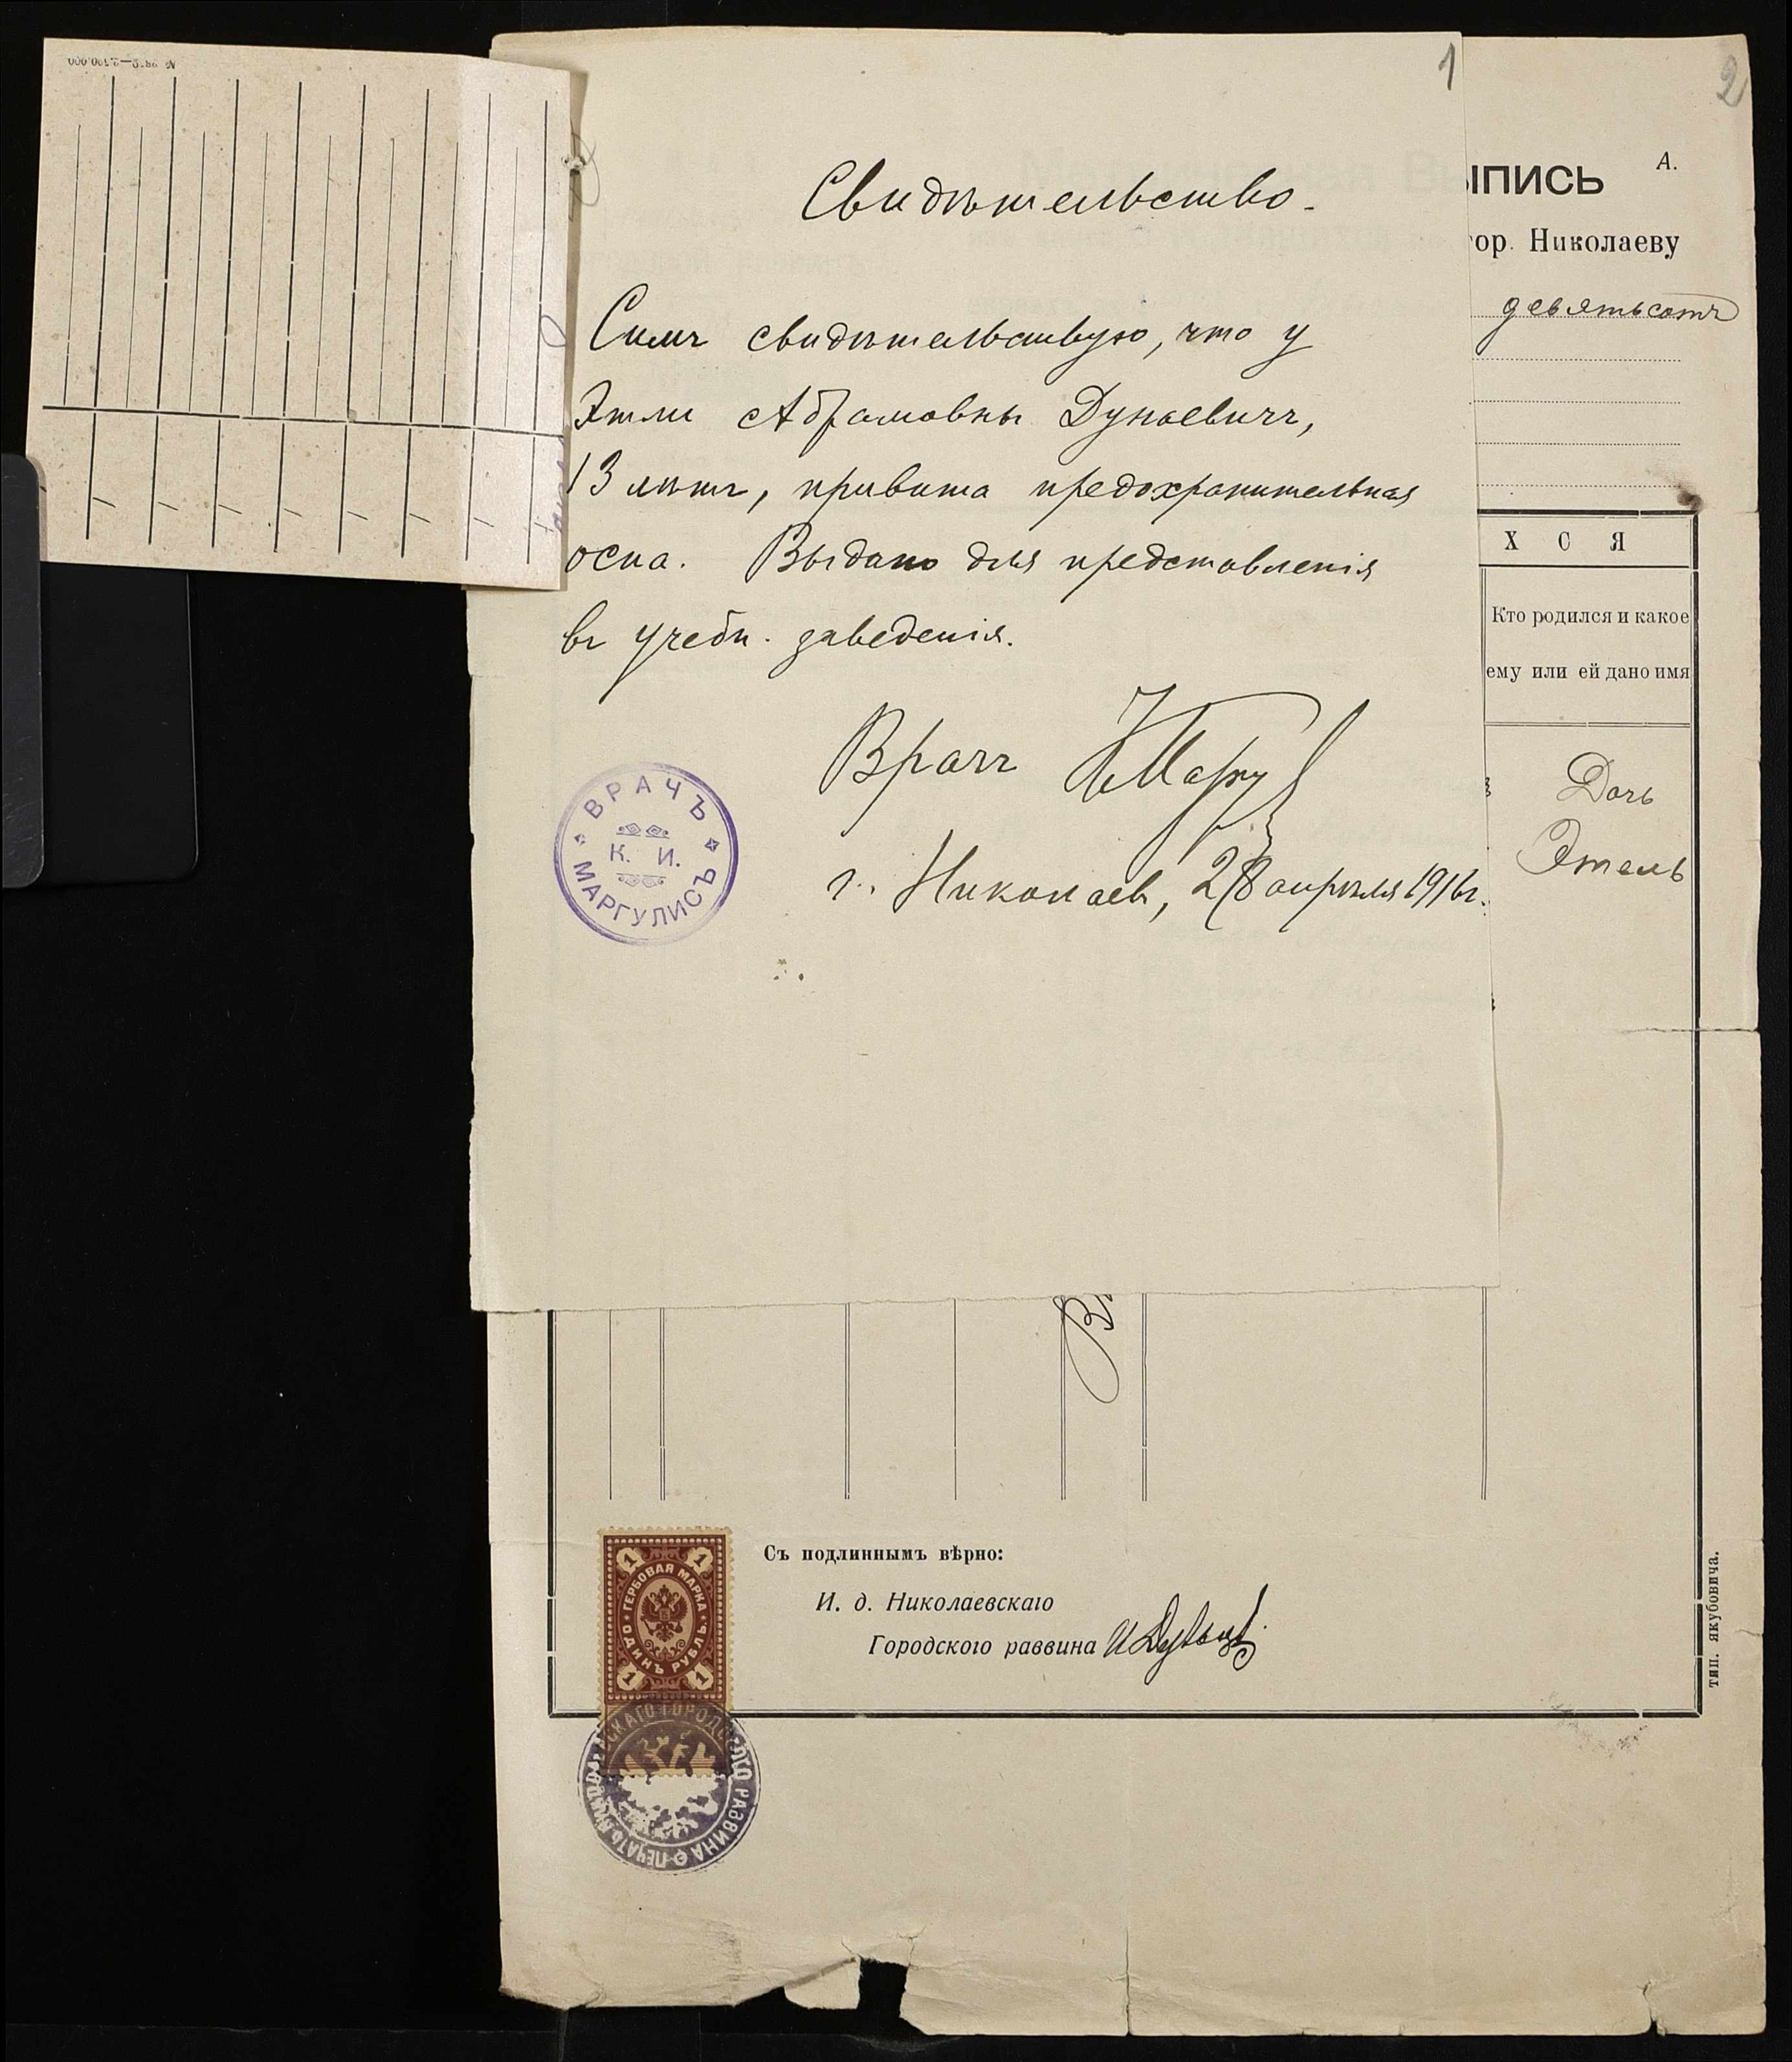 1
Свидѣтельство.
Симъ свидѣтельствую, что у
Этли Абрамовны Дунаевичъ,
13 лѣтъ, привита предохранительная
оспа. Выдано для представленія
въ учебн. заведенія.
Врачъ КМаргулис
г. Николаевъ, 28 апрѣля 1916 г.
ВРАЧЪ
К. И.
МАРГУЛИСЪ
2
А.
ЫПИСЬ
гор. Николаеву
девятьсотъ
Х С Я
Кто родился и какое
ему или ей дано имя
Дочь
Этель
Съ подлиннымъ вѣрно:
И. д. Николаевскаго
Городского раввина
1 1
ГЕРБОВАЯ МАРКА
ОДИНЪ РУБЛЬ
1 1
СКАГО ГОРОДСКОГО РАВВИНА
ПЕЧАТЬ
тип. якубовича.